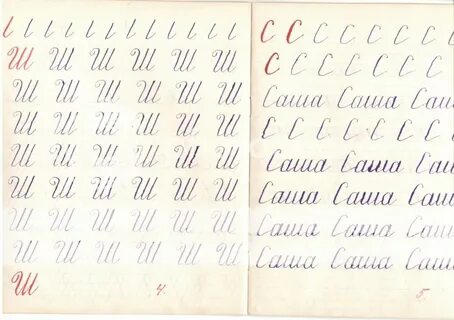 Ш Ш Ш Ш Ш Ш
Ш Ш Ш Ш Ш Ш
Ш Ш Ш Ш Ш Ш
Ш Ш Ш Ш Ш Ш
Ш Ш Ш Ш Ш Ш
Ш Ш Ш Ш Ш Ш
Ш Ш Ш Ш Ш Ш
Ш 4.
С С С С С С С С
С С С С С С С
Саша Саша Саш
С С С С С С С С
Саша Саша Саша
Саша Саша Саша
Саша Саша Саша
Саша Саша Саша
5.